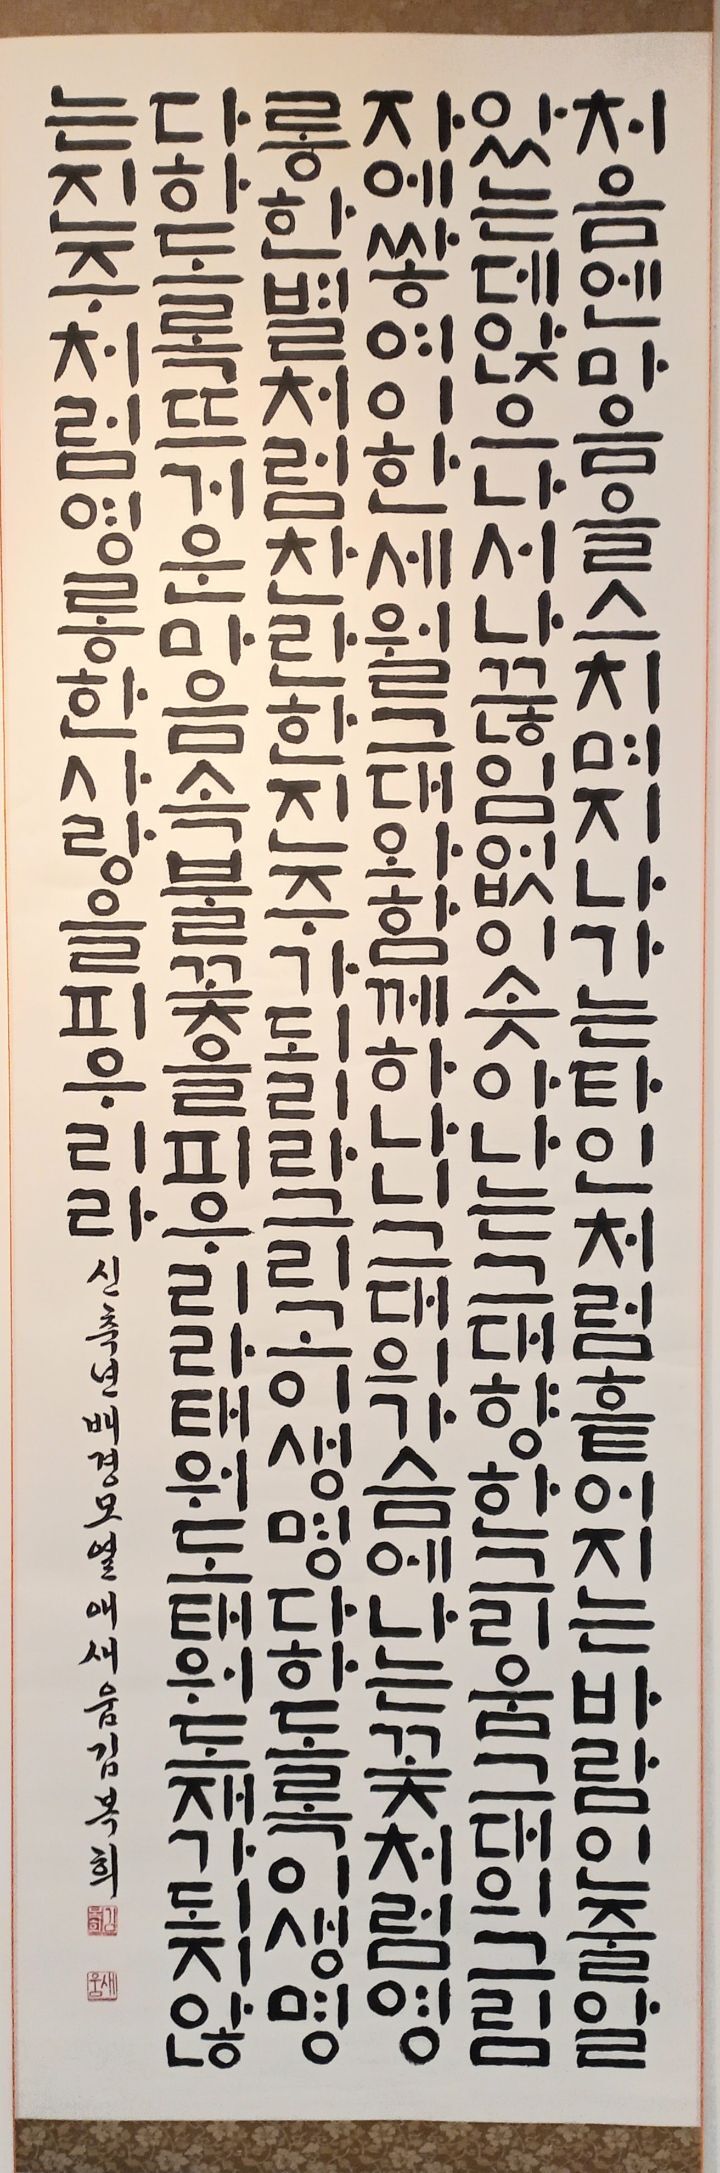 처음엔마음을스치며지나가는타인처럼흩어지는바람인줄알
았는데앉으나서나끊임없이솟아나는그대향한그리움그대의그림
자에쌓여이한세월그대와함께하나니그대의가슴에나는꽃처럼영
롱한별처럼찬란한진주가되리라그리고이생명다하도록이생명
다하도록뜨거운마음속불꽃을피우리라태워도태워도재가되지않
는진주처럼영롱한사랑을피우리라
신축년배경모열애새움김복희
김복희
새움